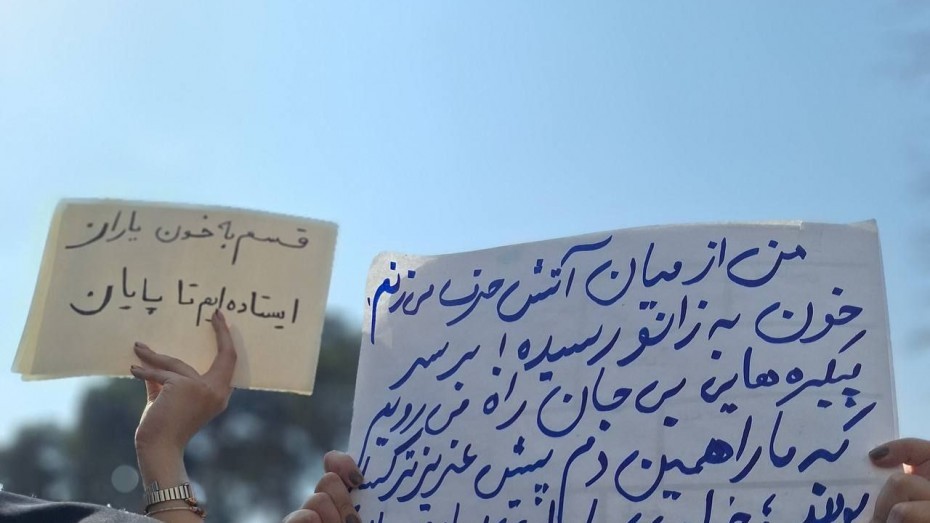 قسم به خون یاران
ایستاده‌ایم تا پایان
من از میان آتش حرف می‌زنم.
خون به زانو رسیده! بر سر
پیکره‌هایی بی‌جان راه می‌رویم
که ما را همین دم پیش عزیزتر
بودند؛